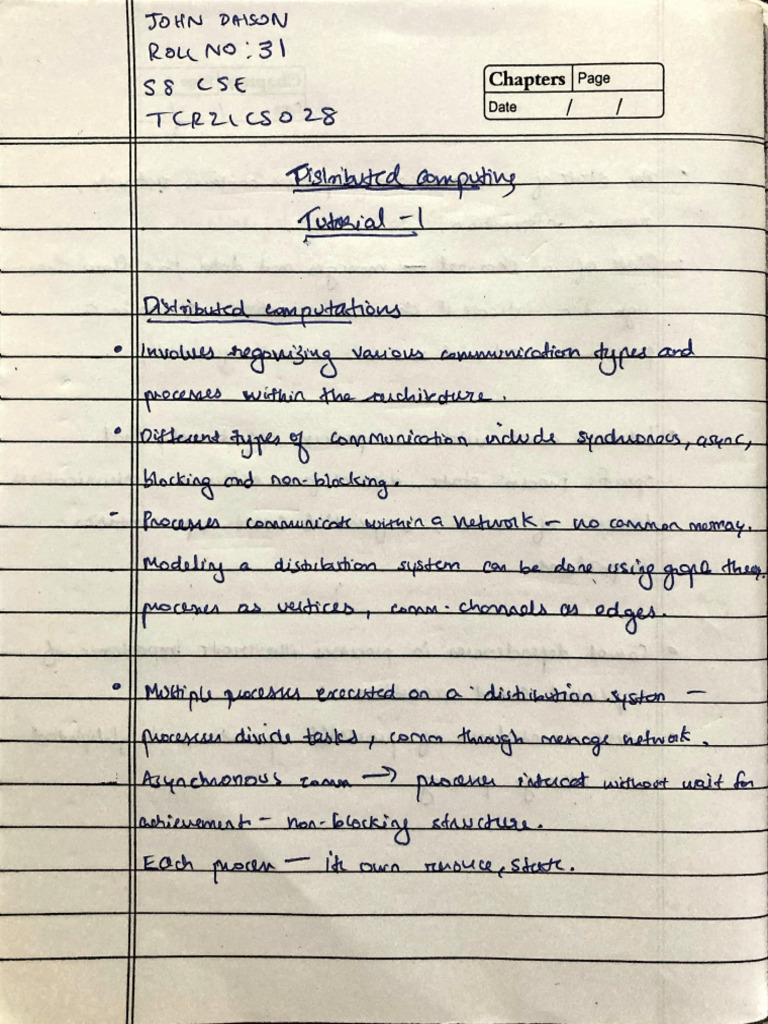 JOHN DAISON
ROLL NO: 31
S8 CSE
TCR21CS028
Chapters Page
Date / /
Distributed computing
Tutorial -1
Distributed computations
• Involves regonizing various communication types and
processes within the architecture.
• Different types of communication include synchronous, async,
blocking and non-blocking.
- Processes communicate within a network - no common memory.
Modeling a distribution system can be done using graph theory.
processes as vertices, comm-channels as edges.
• Multiple processes executed on a distribution system —
processes divide tasks, comm through message network.
Asynchronous comm → processes interact without wait for
achievement - non-blocking structure.
Each process — its own resource, state.